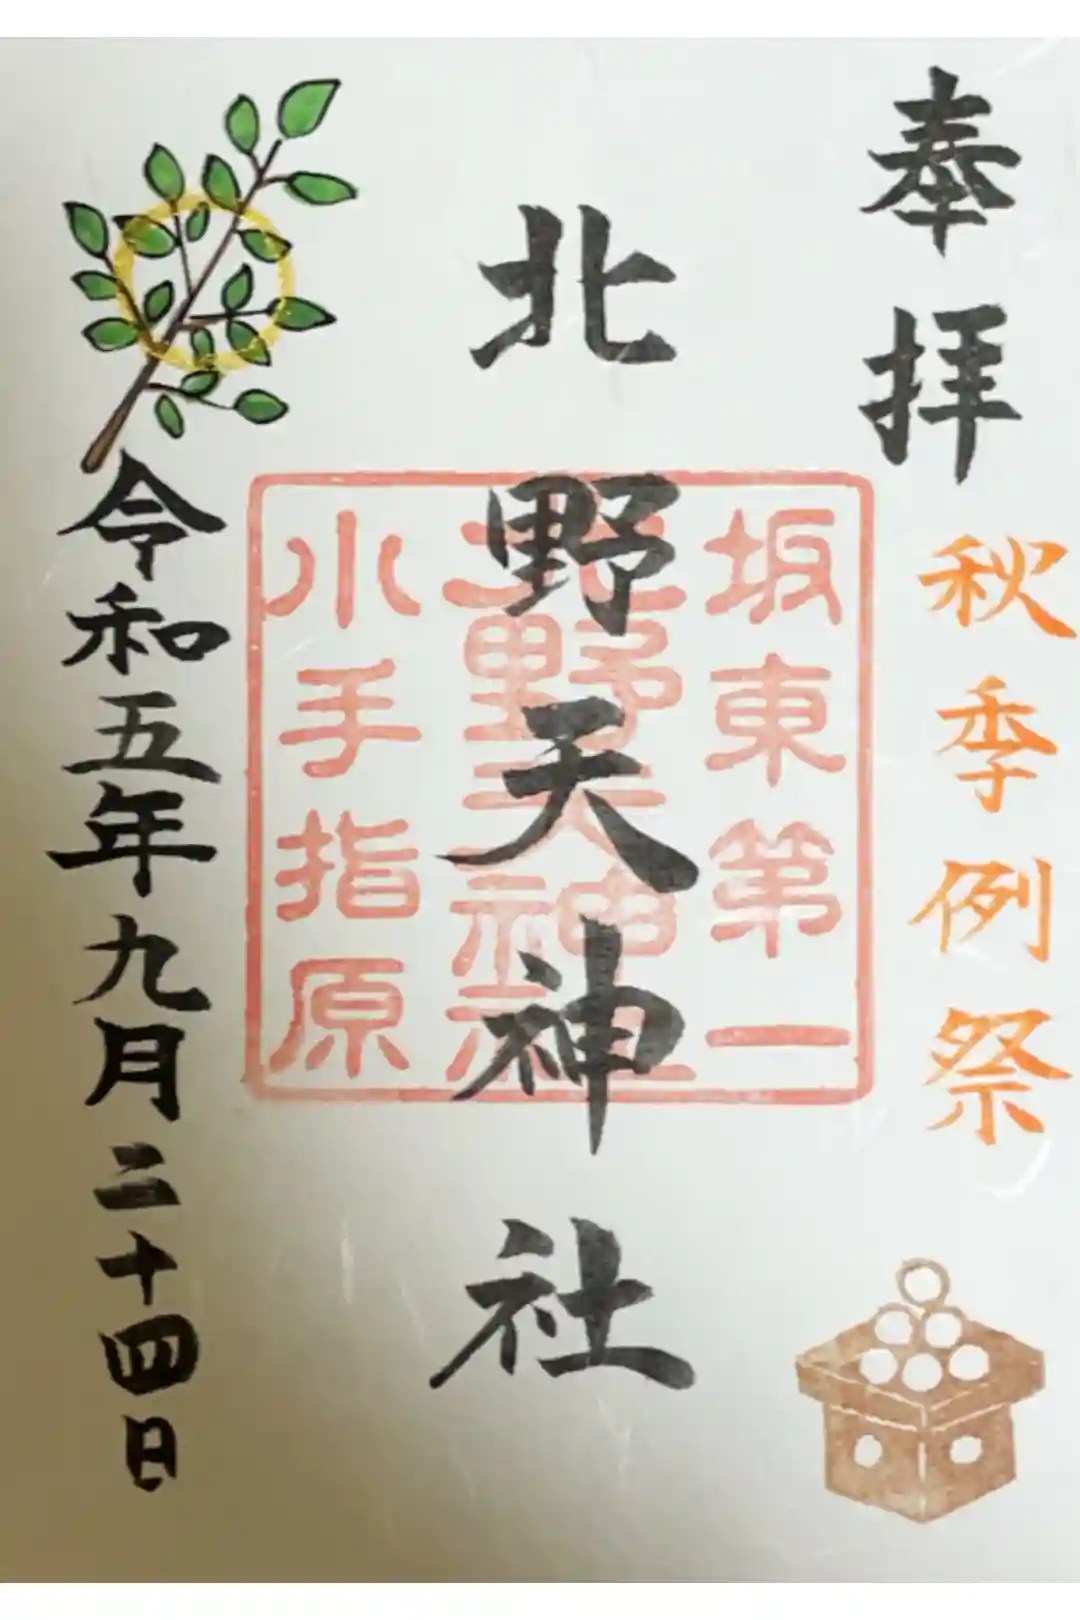 奉拝
秋季例祭
北野天神社
坂東第一
北野天神社
小手指原
令和五年九月二十四日